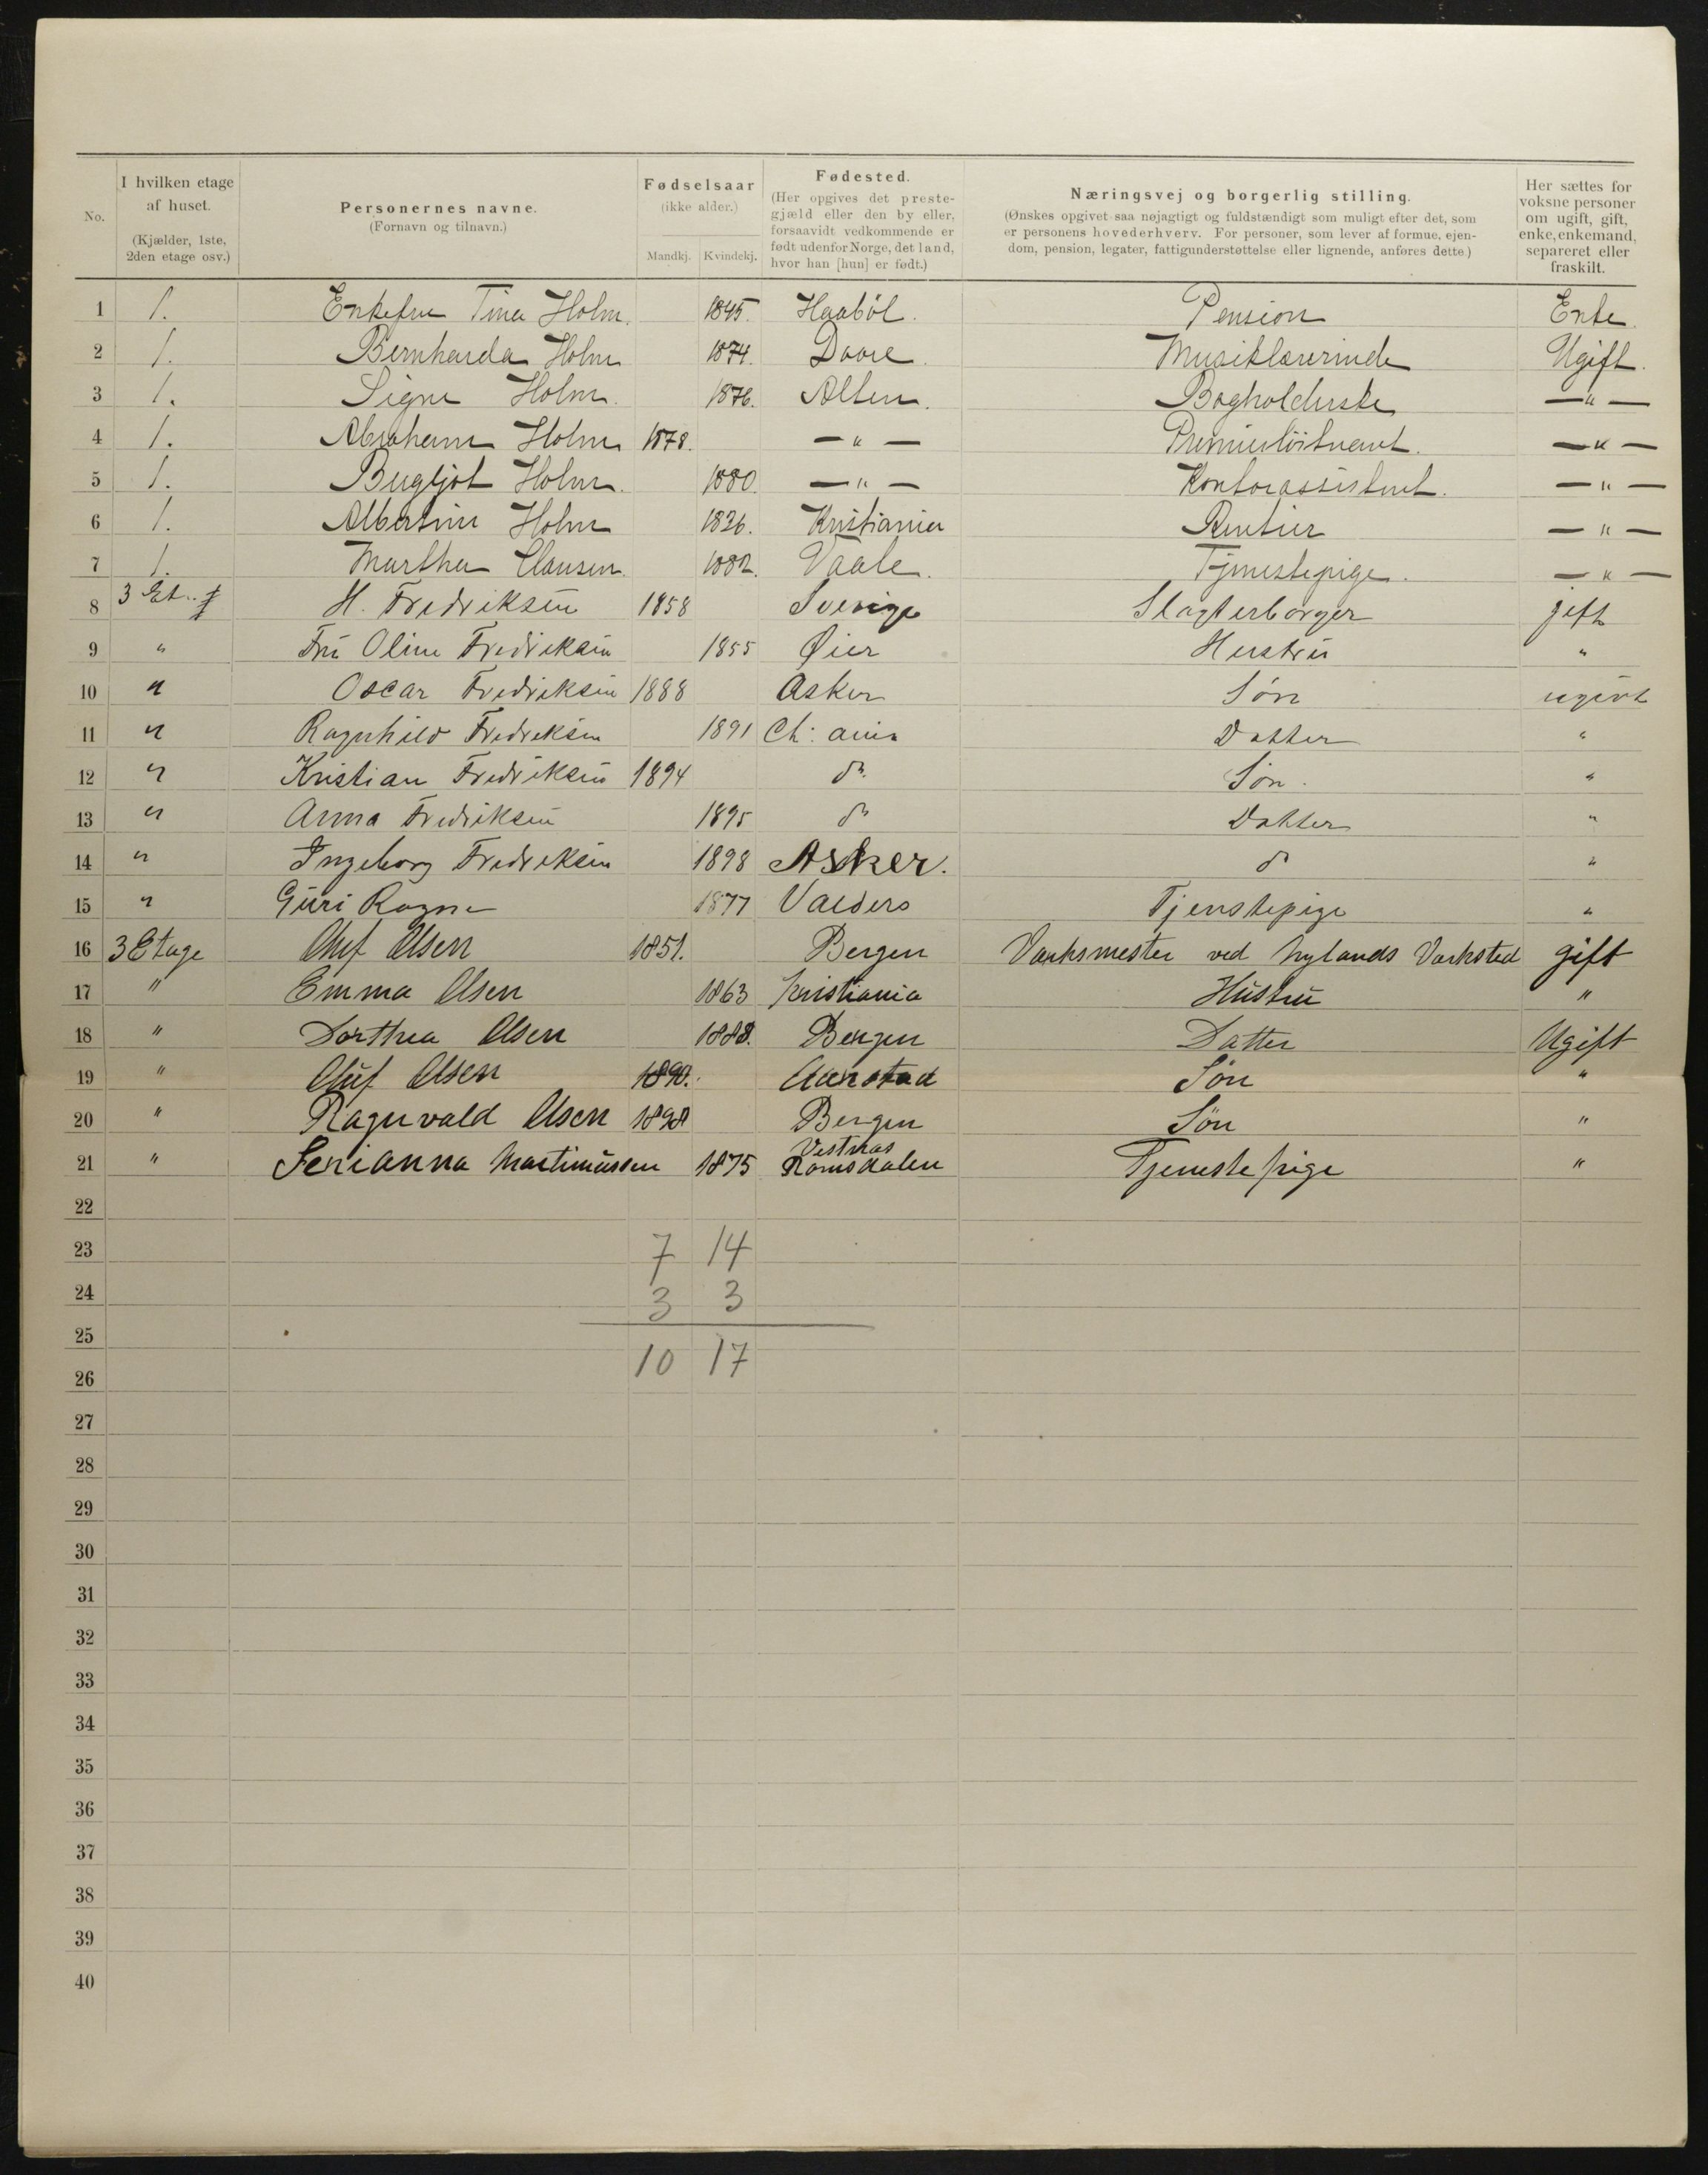 No.
I hvilken etage af huset. (Kjælder, 1ste, 2den etage osv.)
Personernes navne. (Fornavn og tilnavn.)
Fødselsaar (ikke alder.) Mandkj. Kvindekj.
Fødested. (Her opgives det prestegjæld eller den by eller, forsaavidt vedkommende er født udenfor Norge, det land, hvor han [hun] er født.)
Næringsvej og borgerlig stilling. (Ønskes opgivet saa nøjagtigt og fuldstændigt som muligt efter det, som er personens hovederhverv. For personer, som lever af formue, ejendom, pension, legater, fattigunderstøttelse eller lignende, anføres dette.)
Her sættes for voksne personer om ugift, gift, enke, enkemand, separeret eller fraskilt.
1 1. Enkefru Tina Holm. 1845. Haaböl. Pension Enke.
2 1. Bernharda Holm 1874. Dovre. Musiklærerinde Ugift.
3 1. Signe Holm. 1876. Alten. Bogholderske — " —
4 1. Abraham Holm 1878. — " — Premierlöitnant. — " —
5 1. Bergljot Holm. 1880. — " — Kontorassistent. — " —
6 1. Albertine Holm 1826. Kristiania Rentier — " —
7 1. Martha Clausen. 1882. Vaale. Tjenestepige. — " —
8 3 Et. H. Fredriksen 1858 Sverige Slagterborger gift
9 " Fru Oline Fredriksen 1855 Øier Hustru "
10 " Oscar Fredriksen 1888 Asker Søn ugivt
11 " Ragnhild Fredriksen 1891 Ch: ania Datter "
12 " Kristian Fredriksen 1894 do. Søn. "
13 " Anna Fredriksen 1895 do Datter "
14 " Ingeborg Fredriksen 1898 Asker. do "
15 " Guri Ragne 1877 Valders Tjenstepige "
16 3 Etage Oluf Olsen 1851. Bergen Værksmester ved Nylands Værksted gift
17 " Emma Olsen 1863 Kristiania Hustru "
18 " Dorthea Olsen 1888. Bergen Datter Ugift
19 " Oluf Olsen 1890. Aarstad Søn "
20 " Ragnvald Olsen 1898 Bergen Søn "
21 " Serianna Martinussen 1875 Vestnæs Romsdalen Tjenestepige "
22
23 7 14
24 3 3
25
26 10 17
27
28
29
30
31
32
33
34
35
36
37
38
39
40